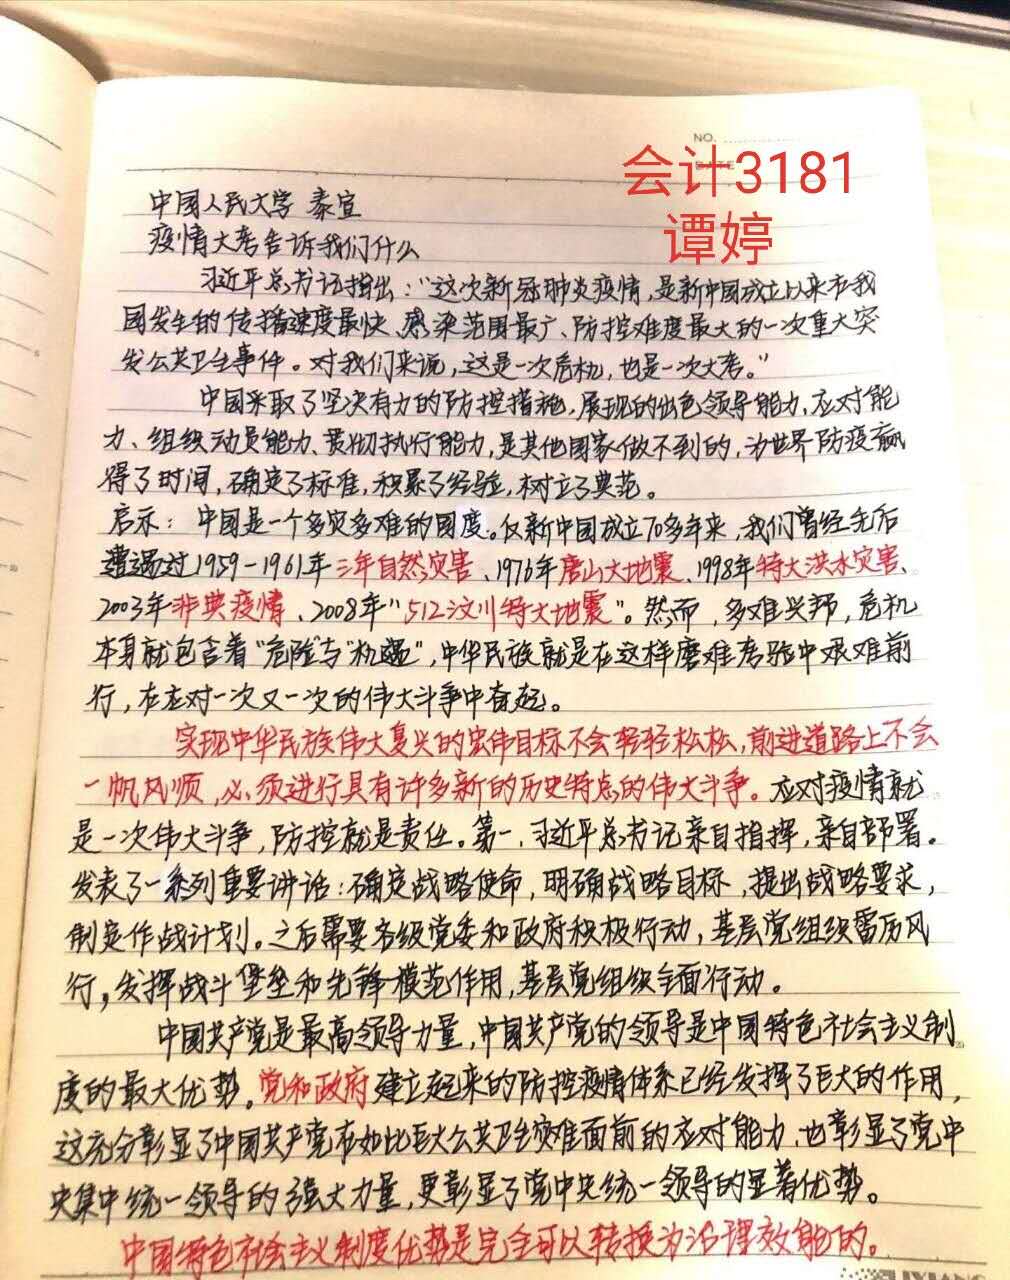 NO.
DATE
会计3181
谭婷
中国人民大学 秦宣
疫情大考告诉我们什么
习近平总书记指出："这次新冠肺炎疫情，是新中国成立以来在我
国发生的传播速度最快、感染范围最广、防控难度最大的一次重大突
发公共卫生事件。对我们来说，这是一次危机，也是一次大考。"
中国采取了坚决有力的防控措施，展现的出色领导能力、应对能
力、组织动员能力、贯彻执行能力，是其他国家做不到的，为世界防疫赢
得了时间，确定了标准，积累了经验，树立了典范。
启示：中国是一个多灾多难的国度。仅新中国成立70多年来，我们曾经先后
遭遇过1959-1961年三年自然灾害、1976年唐山大地震、1998年特大洪水灾害、
2003年非典疫情、2008年"512汶川特大地震"。然而，多难兴邦，危机
本身就包含着"危险"与"机遇"，中华民族就是在这样磨难考验中艰难前
行，在应对一次又一次的伟大斗争中奋起。
实现中华民族伟大复兴的宏伟目标不会轻轻松松，前进道路上不会
一帆风顺，必须进行具有许多新的历史特点的伟大斗争。应对疫情就
是一次伟大斗争，防控就是责任。第一，习近平总书记亲自指挥，亲自部署。
发表了一系列重要讲话：确定战略使命，明确战略目标，提出战略要求，
制定作战计划。之后需要各级党委和政府积极行动，基层党组织雷厉风
行，发挥战斗堡垒和先锋模范作用，基层党组织全面行动。
中国共产党是最高领导力量，中国共产党的领导是中国特色社会主义制
度的最大优势。党和政府建立起来的防控疫情体系已经发挥了巨大的作用，
这充分彰显了中国共产党在如此巨大公共卫生灾难面前的应对能力，也彰显了党中
央集中统一领导的强大力量，更彰显了党中央统一领导的显著优势。
中国特色社会主义制度优势是完全可以转换为治理效能的。